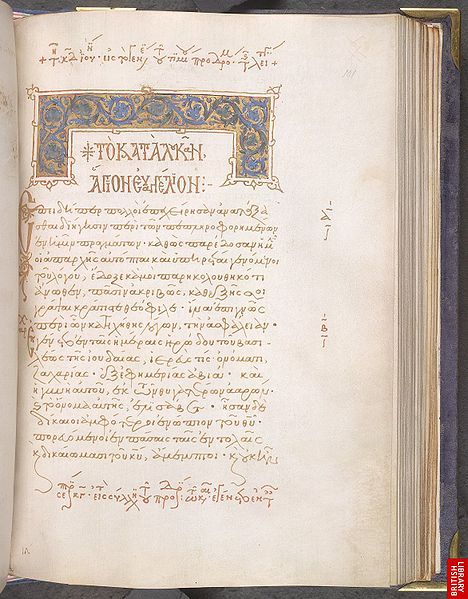 ΤΟ ΚΑΤΑ ΛΟΥΚΑΝ
ΑΓΙΟΝ ΕΥΑΓΓΕΛΙΟΝ :-
Ἐπειδήπερ πολλοὶ ἐπεχείρησαν ἀνατάξα
σθαι διήγησιν περὶ τῶν πεπληροφορημένων
ἐν ἡμῖν πραγμάτων · καθὼς παρέδοσαν ἡμῖν
οἱ ἀπαρχῆς αὐτόπται καὶ ὑπηρέται γενόμενοι
τοῦ λόγου, ἔδοξε κἀμοὶ παρηκολουθηκότι
ἄνωθεν, πᾶσιν ἀκριβῶς, καθεξῆς σοι
γράψαι κράτιστε θεόφιλε · ἵνα ἐπιγνῷς
περὶ ὧν κατηχήθης λόγων, τὴν ἀσφάλειαν ·
ἐγένετο ἐν ταῖς ἡμέραις ἡρώδου τοῦ βασι
λέως τῆς ἰουδαίας, ἱερεύς τις ὀνόματι
ζαχαρίας · ἐξ ἐφημερίας ἀβιά · καὶ
ἡ γυνὴ αὐτοῦ, ἐκ τῶν θυγατέρων ἀαρών ·
καὶ τὸ ὄνομα αὐτῆς, ἐλισάβετ · ἦσαν δὲ
δίκαιοι ἀμφότεροι ἐνώπιον τοῦ θυ ·
πορευόμενοι ἐν πάσαις ταῖς ἐντολαῖς
κ δικαιώμασι τοῦ κυ, ἄμεμπτοι · κ οὐκ ἦν
101
BRITISH
LIBRARY